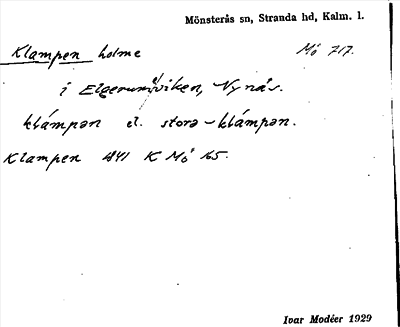 Mönsterås sn, Stranda hd, Kalm. l.
Klampen holme Mö 717.
i Elgerumsviken, Nynäs.
klámpən el. stora-klámpən.
Klampen 1841 K Mö 65.
Ivar Modéer 1929